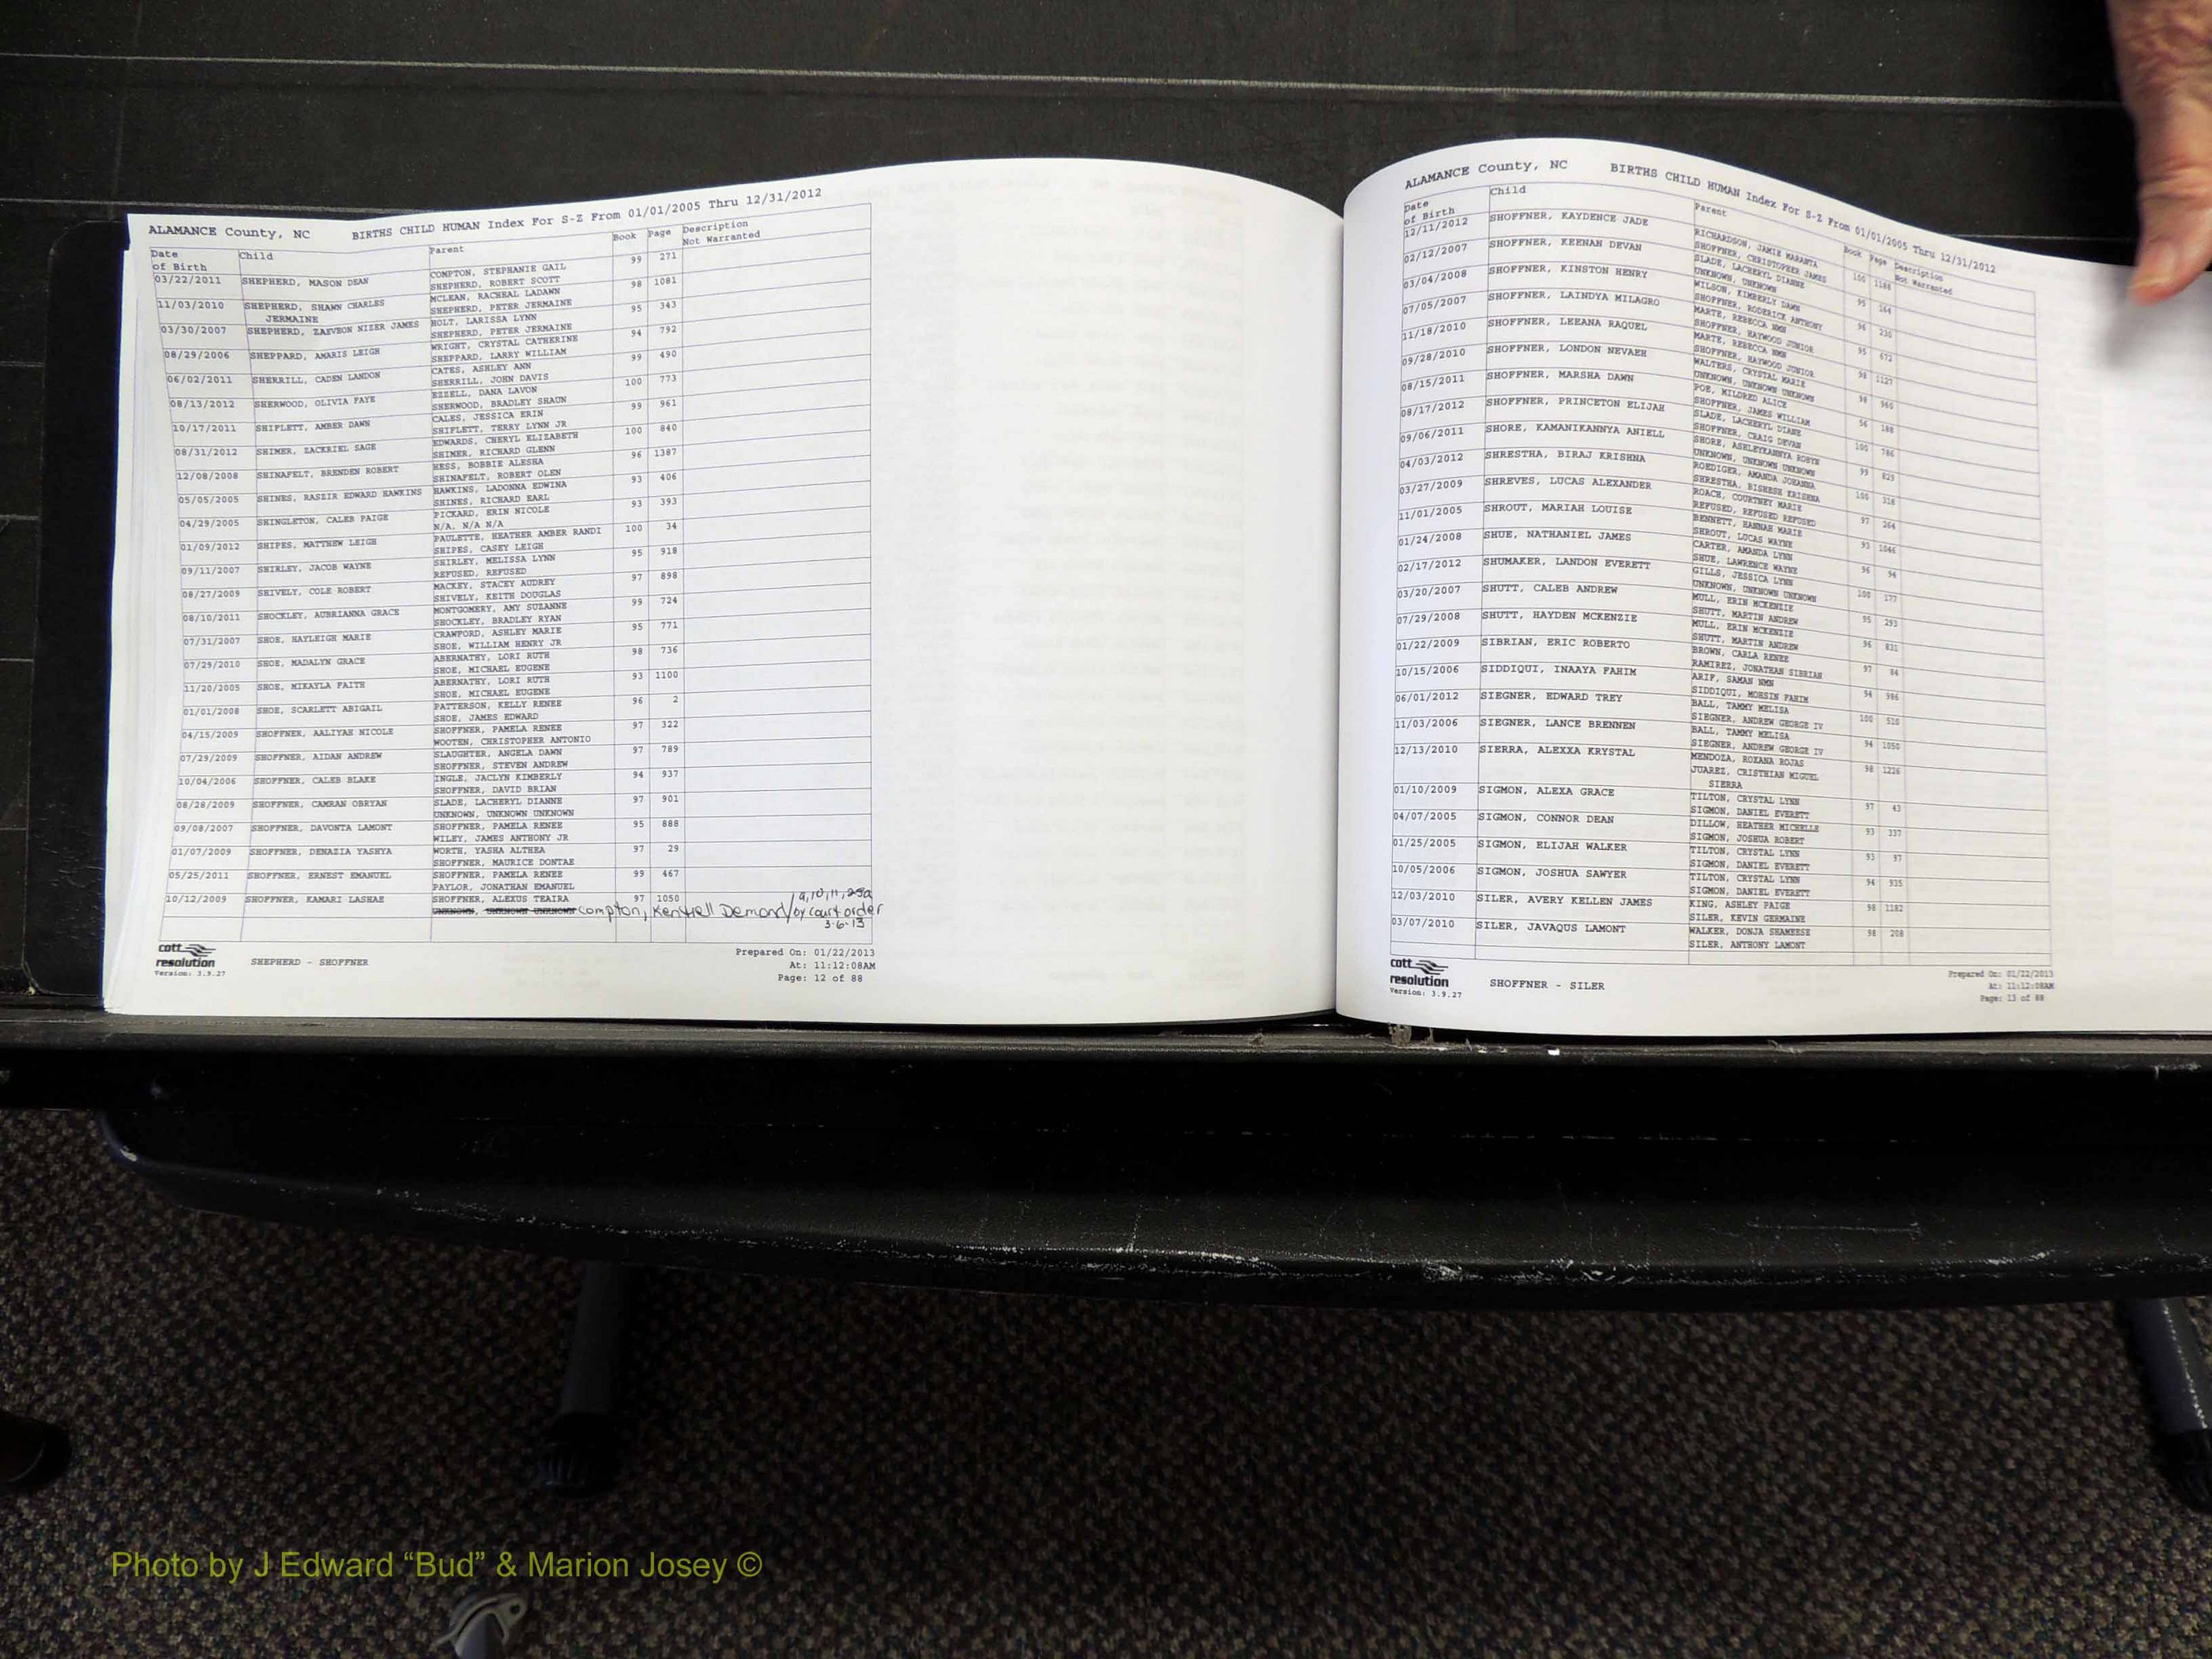 ALAMANCE County, NC BIRTHS CHILD HUMAN Index For S-Z From 01/01/2005 Thru 12/31/2012
Date of Birth Child Parent Book Page Description Not Warranted
03/22/2011 SHEPHERD, MASON DEAN COMPTON, STEPHANIE GAIL 99 271
SHEPHERD, ROBERT SCOTT
11/03/2010 SHEPHERD, SHAWN CHARLES MCLEAN, RACHEAL LADAWN 98 1081
JERMAINE SHEPHERD, PETER JERMAINE
03/30/2007 SHEPHERD, ZAEVEON NIZER JAMES HOLT, LARISSA LYNN 95 343
SHEPHERD, PETER JERMAINE
08/29/2006 SHEPPARD, AMARIS LEIGH WRIGHT, CRYSTAL CATHERINE 94 792
SHEPPARD, LARRY WILLIAM
06/02/2011 SHERRILL, CADEN LANDON CATES, ASHLEY ANN 99 490
SHERRILL, JOHN DAVIS
08/13/2012 SHERWOOD, OLIVIA FAYE EZZELL, DANA LAVON 100 773
SHERWOOD, BRADLEY SHAUN
10/17/2011 SHIFLETT, AMBER DAWN CALES, JESSICA ERIN 99 961
SHIFLETT, TERRY LYNN JR
08/31/2012 SHIMER, ZACKRIEL SAGE EDWARDS, CHERYL ELIZABETH 100 840
SHIMER, RICHARD GLENN
12/08/2008 SHINAFELT, BRENDEN ROBERT HESS, BOBBIE ALESHA 96 1387
SHINAFELT, ROBERT OLEN
05/05/2005 SHINES, RASZIR EDWARD HAWKINS HAWKINS, LADONNA EDWINA 93 406
SHINES, RICHARD EARL
04/29/2005 SHINGLETON, CALEB PAIGE PICKARD, ERIN NICOLE 93 393
N/A, N/A N/A
01/09/2012 SHIPES, MATTHEW LEIGH PAULETTE, HEATHER AMBER RANDI 100 34
SHIPES, CASEY LEIGH
09/11/2007 SHIRLEY, JACOB WAYNE SHIRLEY, MELISSA LYNN 95 918
REFUSED, REFUSED
08/27/2009 SHIVELY, COLE ROBERT MACKEY, STACEY AUDREY 97 898
SHIVELY, KEITH DOUGLAS
08/10/2011 SHOCKLEY, AUBRIANNA GRACE MONTGOMERY, AMY SUZANNE 99 724
SHOCKLEY, BRADLEY RYAN
07/31/2007 SHOE, HAYLEIGH MARIE CRAWFORD, ASHLEY MARIE 95 771
SHOE, WILLIAM HENRY JR
07/29/2010 SHOE, MADALYN GRACE ABERNATHY, LORI RUTH 98 736
SHOE, MICHAEL EUGENE
11/20/2005 SHOE, MIKAYLA FAITH ABERNATHY, LORI RUTH 93 1100
SHOE, MICHAEL EUGENE
01/01/2008 SHOE, SCARLETT ABIGAIL PATTERSON, KELLY RENEE 96 2
SHOE, JAMES EDWARD
04/15/2009 SHOFFNER, AALIYAH NICOLE SHOFFNER, PAMELA RENEE 97 322
WOOTEN, CHRISTOPHER ANTONIO
07/29/2009 SHOFFNER, AIDAN ANDREW SLAUGHTER, ANGELA DAWN 97 789
SHOFFNER, STEVEN ANDREW
10/04/2006 SHOFFNER, CALEB BLAKE INGLE, JACLYN KIMBERLY 94 937
SHOFFNER, DAVID BRIAN
08/28/2009 SHOFFNER, CAMRAN OBRYAN SLADE, LACHERYL DIANNE 97 901
UNKNOWN, UNKNOWN UNKNOWN
09/08/2007 SHOFFNER, DAVONTA LAMONT SHOFFNER, PAMELA RENEE 95 888
WILEY, JAMES ANTHONY JR
01/07/2009 SHOFFNER, DENAZIA YASHYA WORTH, YASHA ALTHEA 97 29
SHOFFNER, MAURICE DONTAE
05/25/2011 SHOFFNER, ERNEST EMANUEL SHOFFNER, PAMELA RENEE 99 467
PAYLOR, JONATHAN EMANUEL
10/12/2009 SHOFFNER, KAMARI LASHAE SHOFFNER, ALEXUS TEAIRA 97 1050 9,10,11,25a
UNKNOWN, UNKNOWN UNKNOWN Compton, Kentrell Demond/by court order
3-6-13
cott resolution Version: 3.9.27
SHEPHERD - SHOFFNER
Prepared On: 01/22/2013
At: 11:12:08AM
Page: 12 of 88
ALAMANCE County, NC BIRTHS CHILD HUMAN Index For S-Z From 01/01/2005 Thru 12/31/2012
Date of Birth Child Parent Book Page Description Not Warranted
12/11/2012 SHOFFNER, KAYDENCE JADE RICHARDSON, JAMIE MARANTA 100 1188
SHOFFNER, CHRISTOPHER JAMES
02/12/2007 SHOFFNER, KEENAN DEVAN SLADE, LACHERYL DIANNE 95 164
UNKNOWN, UNKNOWN
03/04/2008 SHOFFNER, KINSTON HENRY WILSON, KIMBERLY DAWN 96 230
SHOFFNER, RODERICK ANTHONY
07/05/2007 SHOFFNER, LAINDYA MILAGRO MARTE, REBECCA NMN 95 672
SHOFFNER, HAYWOOD JUNIOR
11/18/2010 SHOFFNER, LEEANA RAQUEL MARTE, REBECCA NMN 98 1127
SHOFFNER, HAYWOOD JUNIOR
09/28/2010 SHOFFNER, LONDON NEVAEH WALTERS, CRYSTAL MARIE 98 960
UNKNOWN, UNKNOWN UNKNOWN
08/15/2011 SHOFFNER, MARSHA DAWN POE, MILDRED ALICE 56 188
SHOFFNER, JAMES WILLIAM
08/17/2012 SHOFFNER, PRINCETON ELIJAH SLADE, LACHERYL DIANE 100 786
SHOFFNER, CRAIG DEVAN
09/06/2011 SHORE, KAMANIKANNYA ANIELL SHORE, ASHLEYKANNYA ROBYN 99 829
UNKNOWN, UNKNOWN UNKNOWN
04/03/2012 SHRESTHA, BIRAJ KRISHNA ROEDIGER, AMANDA JOHANNA 100 318
SHRESTHA, BISHESH KRISHNA
03/27/2009 SHREVES, LUCAS ALEXANDER ROACH, COURTNEY MARIE 97 264
REFUSED, REFUSED REFUSED
11/01/2005 SHROUT, MARIAH LOUISE BENNETT, HANNAH MARIE 93 1046
SHROUT, LUCAS WAYNE
01/24/2008 SHUE, NATHANIEL JAMES CARTER, AMANDA LYNN 96 94
SHUE, LAWRENCE WAYNE
02/17/2012 SHUMAKER, LANDON EVERETT GILLS, JESSICA LYNN 100 177
UNKNOWN, UNKNOWN UNKNOWN
03/20/2007 SHUTT, CALEB ANDREW MULL, ERIN MCKENZIE 95 293
SHUTT, MARTIN ANDREW
07/29/2008 SHUTT, HAYDEN MCKENZIE MULL, ERIN MCKENZIE 96 831
SHUTT, MARTIN ANDREW
01/22/2009 SIBRIAN, ERIC ROBERTO BROWN, CARLA RENEE 97 84
RAMIREZ, JONATHAN SIBRIAN
10/15/2006 SIDDIQUI, INAAYA FAHIM ARIF, SAMAN NMN 94 986
SIDDIQUI, MOHSIN FAHIM
06/01/2012 SIEGNER, EDWARD TREY BALL, TAMMY MELISA 100 520
SIEGNER, ANDREW GEORGE IV
11/03/2006 SIEGNER, LANCE BRENNEN BALL, TAMMY MELISA 94 1050
SIEGNER, ANDREW GEORGE IV
12/13/2010 SIERRA, ALEXXA KRYSTAL MENDOZA, ROXANA ROJAS 98 1226
JUAREZ, CRISTHIAN MIGUEL
SIERRA
01/10/2009 SIGMON, ALEXA GRACE TILTON, CRYSTAL LYNN 97 43
SIGMON, DANIEL EVERETT
04/07/2005 SIGMON, CONNOR DEAN DILLOW, HEATHER MICHELLE 93 337
SIGMON, JOSHUA ROBERT
01/25/2005 SIGMON, ELIJAH WALKER TILTON, CRYSTAL LYNN 93 97
SIGMON, DANIEL EVERETT
10/05/2006 SIGMON, JOSHUA SAWYER TILTON, CRYSTAL LYNN 94 935
SIGMON, DANIEL EVERETT
12/03/2010 SILER, AVERY KELLEN JAMES KING, ASHLEY PAIGE 98 1182
SILER, KEVIN GERMAINE
03/07/2010 SILER, JAVAQUS LAMONT WALKER, DONJA SHAMEESE 98 208
SILER, ANTHONY LAMONT
cott resolution Version: 3.9.27
SHOFFNER - SILER
Prepared On: 01/22/2013
At: 11:12:08AM
Page: 13 of 88
Photo by J Edward “Bud” & Marion Josey ©